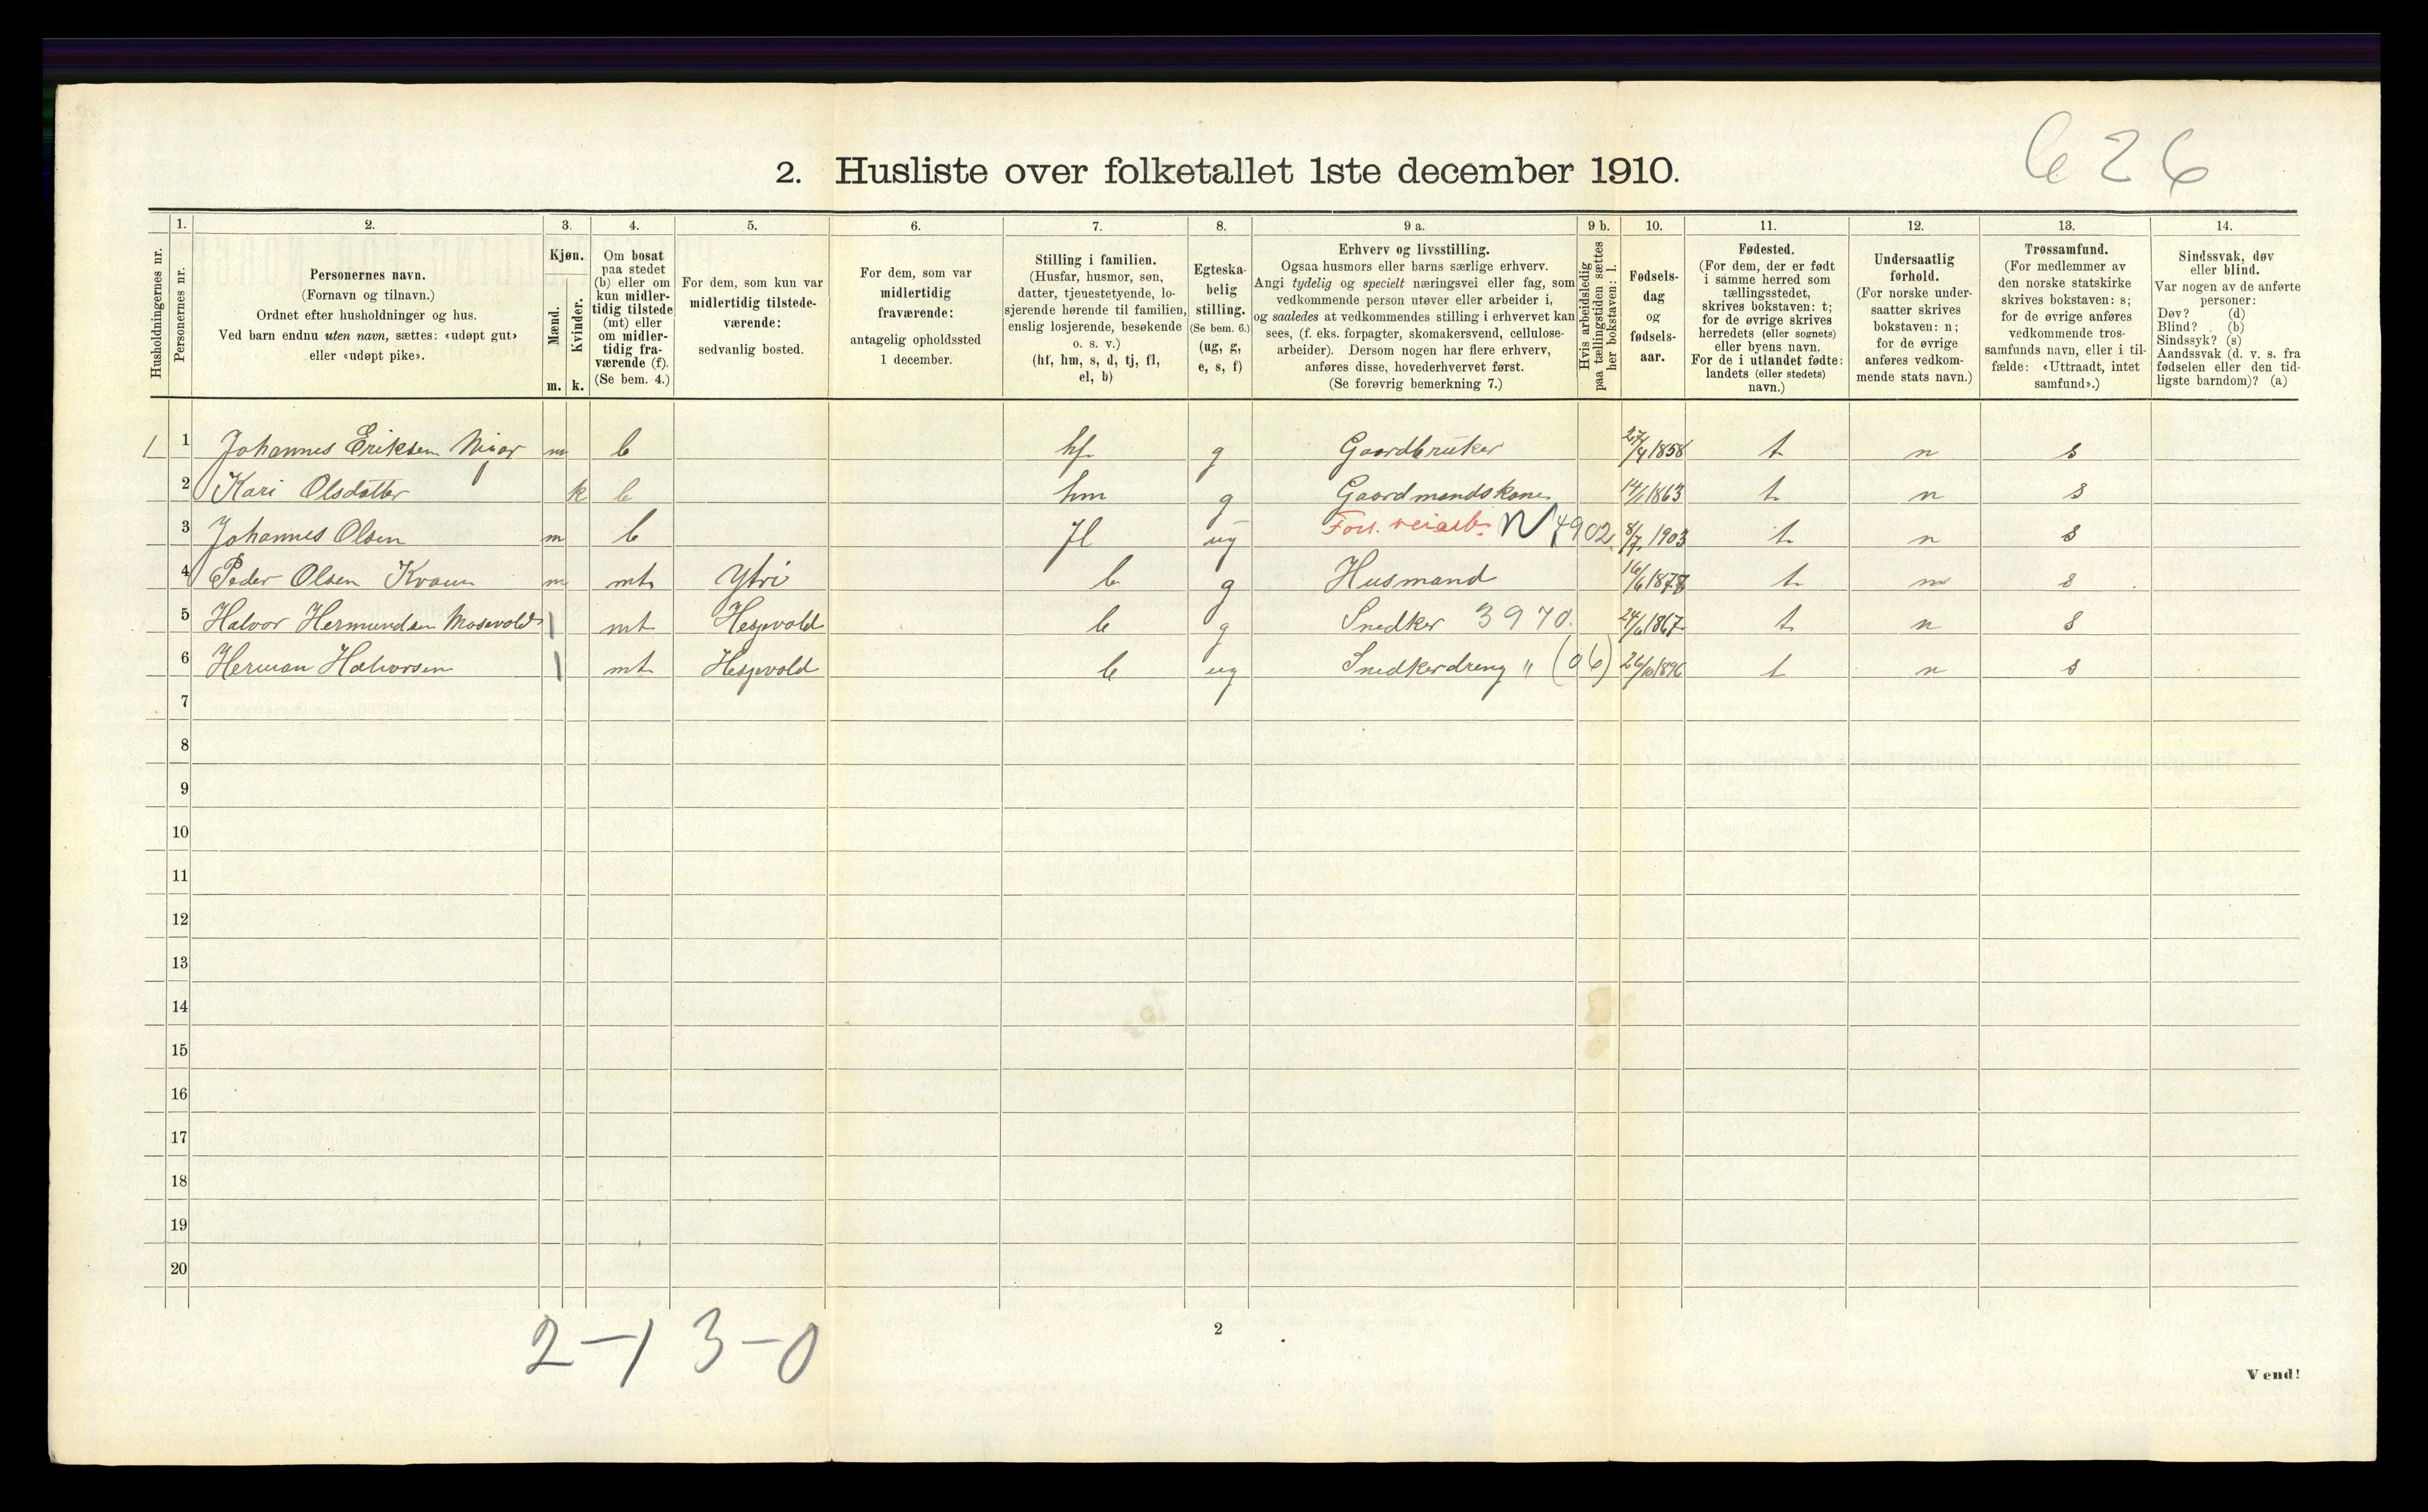 626
2. Husliste over folketallet 1ste december 1910.
Husholdningernes nr.
1. Personernes nr.
2. Personernes navn.
(Fornavn og tilnavn.)
Ordnet efter husholdninger og hus.
Ved barn endnu uten navn, sættes: «udøpt gut»
eller «udøpt pike».
3. Kjøn.
Mænd. m.
Kvinder. k.
4. Om bosat
paa stedet
(b) eller om
kun midler-
tidig tilstede
(mt) eller
om midler-
tidig fra-
værende (f).
(Se bem. 4.)
5. For dem, som kun var
midlertidig tilstede-
værende:
sedvanlig bosted.
6. For dem, som var
midlertidig
fraværende:
antagelig opholdssted
1 december.
7. Stilling i familien.
(Husfar, husmor, søn,
datter, tjenestetyende, lo-
sjerende hørende til familien,
enslig losjerende, besøkende
o. s. v.)
(hf, hm, s, d, tj, fl,
el, b)
8. Egteska-
belig
stilling.
(Se bem. 6.)
(ug, g,
e, s, f)
9 a. Erhverv og livsstilling.
Ogsaa husmors eller barns særlige erhverv.
Angi tydelig og specielt næringsvei eller fag, som
vedkommende person utøver eller arbeider i,
og saaledes at vedkommendes stilling i erhvervet kan
sees, (f. eks. forpagter, skomakersvend, cellulose-
arbeider). Dersom nogen har flere erhverv,
anføres disse, hovederhvervet først.
(Se forøvrig bemerkning 7.)
9 b. Hvis arbeidsledig
paa tællingstiden sættes
her bokstaven: l.
10. Fødsels-
dag
og
fødsels-
aar.
11. Fødested.
(For dem, der er født
i samme herred som
tællingsstedet,
skrives bokstaven: t;
for de øvrige skrives
herredets (eller sognets)
eller byens navn.
For de i utlandet fødte:
landets (eller stedets)
navn.)
12. Undersaatlig
forhold.
(For norske under-
saatter skrives
bokstaven: n;
for de øvrige
anføres vedkom-
mende stats navn.)
13. Trossamfund.
(For medlemmer av
den norske statskirke
skrives bokstaven: s;
for de øvrige anføres
vedkommende tros-
samfunds navn, eller i til-
fælde: «Uttraadt, intet
samfund».)
14. Sindssvak, døv
eller blind.
Var nogen av de anførte
personer:
Døv? (d)
Blind? (b)
Sindssyk? (s)
Aandssvak (d. v. s. fra
fødselen eller den tid-
ligste barndom)? (a)
1 1 Johannes Eriksen m b hf g Gaardbruker 27/4 1858 t n s
2 Kari Olsdatter k b hm g Gaardmandskone 14/1 1863 t n s
3 Johannes Olsen m b fl ug Fors. veiarb. N 4902. 8/7 1903 t n s
4 Peder Olsen Kvam m mt Ytri b g Husmand 16/6 1878 t n s
5 Halvor Hermundsen Mosevold 1 mt Hespvold b g Snedker 3970. 24/6 1867 t n s
6 Herman Halvorsen 1 mt Hespvold b ug Snedkerdreng " (06) 26/10 1896 t n s
7
8
9
10
11
12
13
14
15
16
17
18
19
20
2–1 3–0
2
Vend!